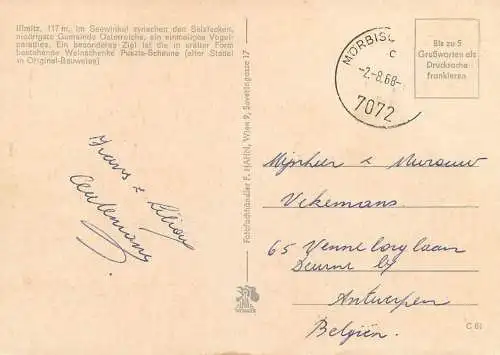 Illmitz, 117 m, im Seewinkel zwischen den Salzlacken,
niedrigste Gemeinde Österreichs, ein einmaliges Vogel-
paradies. Ein besonderes Ziel ist die in erster Form
bestehende Weinschenke Puszta-Scheune (alter Stadel
in Original-Bauweise)
Frans &
Fotofachhändler F. HAHN, Wien 9, Severingasse 17
MÖRBISC
c
-2.-8.68-
7072
Bis zu 5
Grußworten als
Drucksache
frankieren
Mijnheer & Mevrouw
Vekemans.
65 Venneborglaan
Deurne by
Antwerpen
Belgien.
C 61